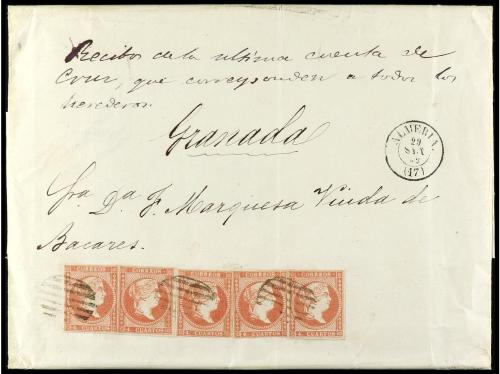 Recibos de la ultima cuenta de
Cruz, que corresponden a todos los
herederos.
Granada
ALMERIA
29
SET
(17)
Sra. Da. F. Marquesa Viuda de
Bacares.
CORREOS CORREOS CORREOS CORREOS CORREOS
4 CUARTOS 4 CUARTOS 4 CUARTOS 4 CUARTOS 4 CUARTOS